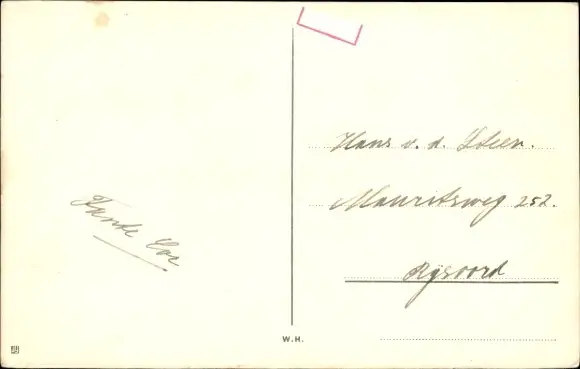 Tante Cor
Hans v. d. Steen.
Mauritsweg 252.
Rijsoord
W.H.